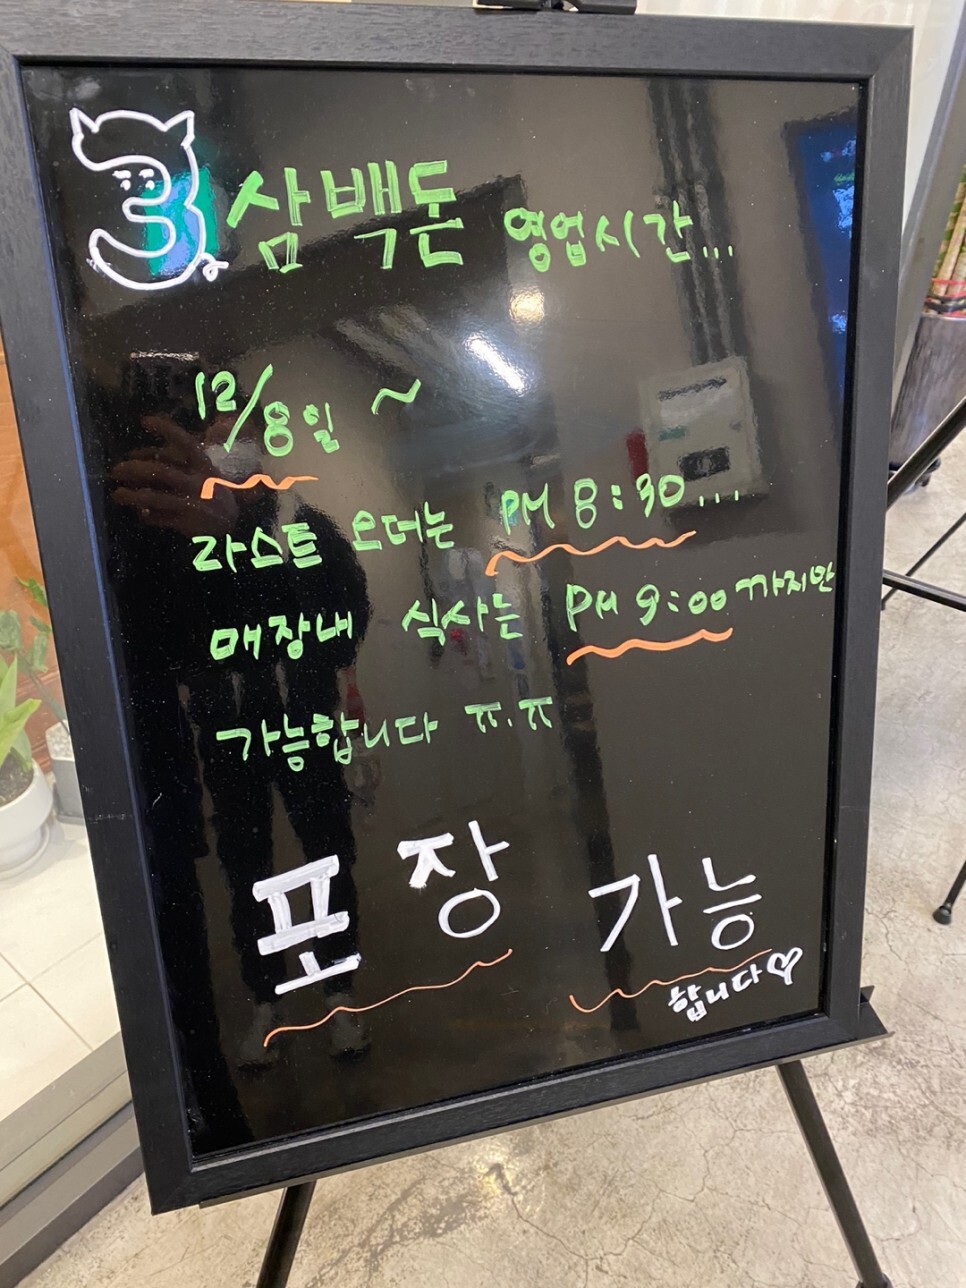 삼백돈 영업시간...
12/8일 ~
라스트 오더는 PM 8:30...
매장내 식사는 PM 9:00 까지만
가능합니다 ㅠ.ㅠ
포장 가능
합니다♡